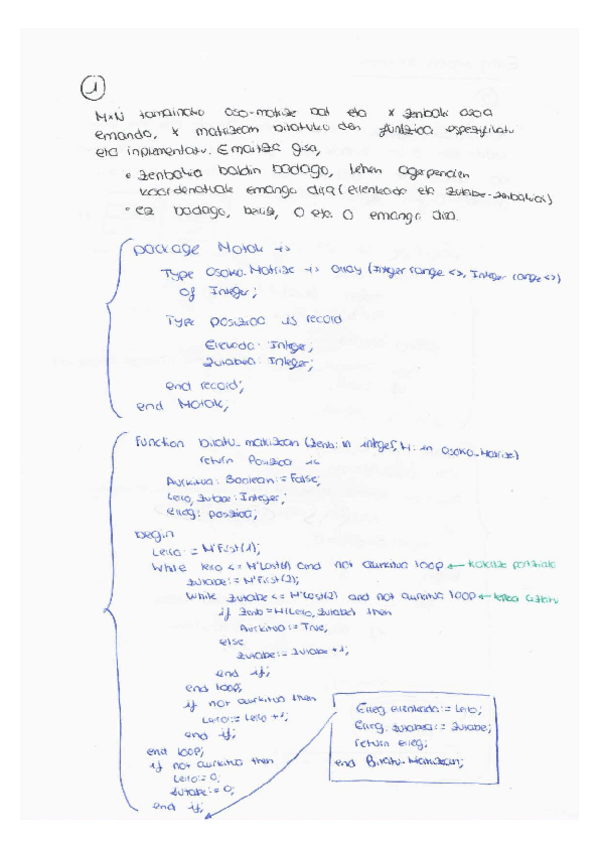 1
M×N tamainako oso-matrize bat eta x zenbaki osoa
emanda, x matrizean bilatuko den funtzioa espezifikatu
eta inplementatu. Emaitza gisa,
• zenbakia baldin badago, lehen agerpenaren
koordenatuak emango dira (errenkada eta zutabe-zenbakia)
• ez badago, berriz, 0 eta 0 emango dira.
package Motak is
Type Osoko_Matrize is array (Integer range <>, Integer range <>)
of Integer;
Type posizioa is record
Errenkada: Integer;
Zutabea: Integer;
end record;
end Motak;
function bilatu_matrizean (Zenb: in integer, M: in Osoko_Matrize)
return Posizioa is
Aurkitua: Boolean := False;
Lerro, zutabe: Integer;
erreg: posizioa;
begin
Lerro := M'First(1);
While lerro <= M'Last(1) and not aurkitua loop ← kanpoko
zutabe := M'First(2);
While zutabe <= M'Last(2) and not aurkitua loop ←
if Zenb = M(Lerro, zutabe) then
Aurkitua := True;
else
zutabe := zutabe + 1;
end if;
end loop;
if not aurkitua then
Lerro := Lerro + 1;
end if;
end loop;
if not aurkitua then
Lerro := 0;
zutabe := 0;
end if;
Erreg.errenkada := Lerro;
Erreg.zutabea := zutabe;
return erreg;
end Bilatu_Matrizean;